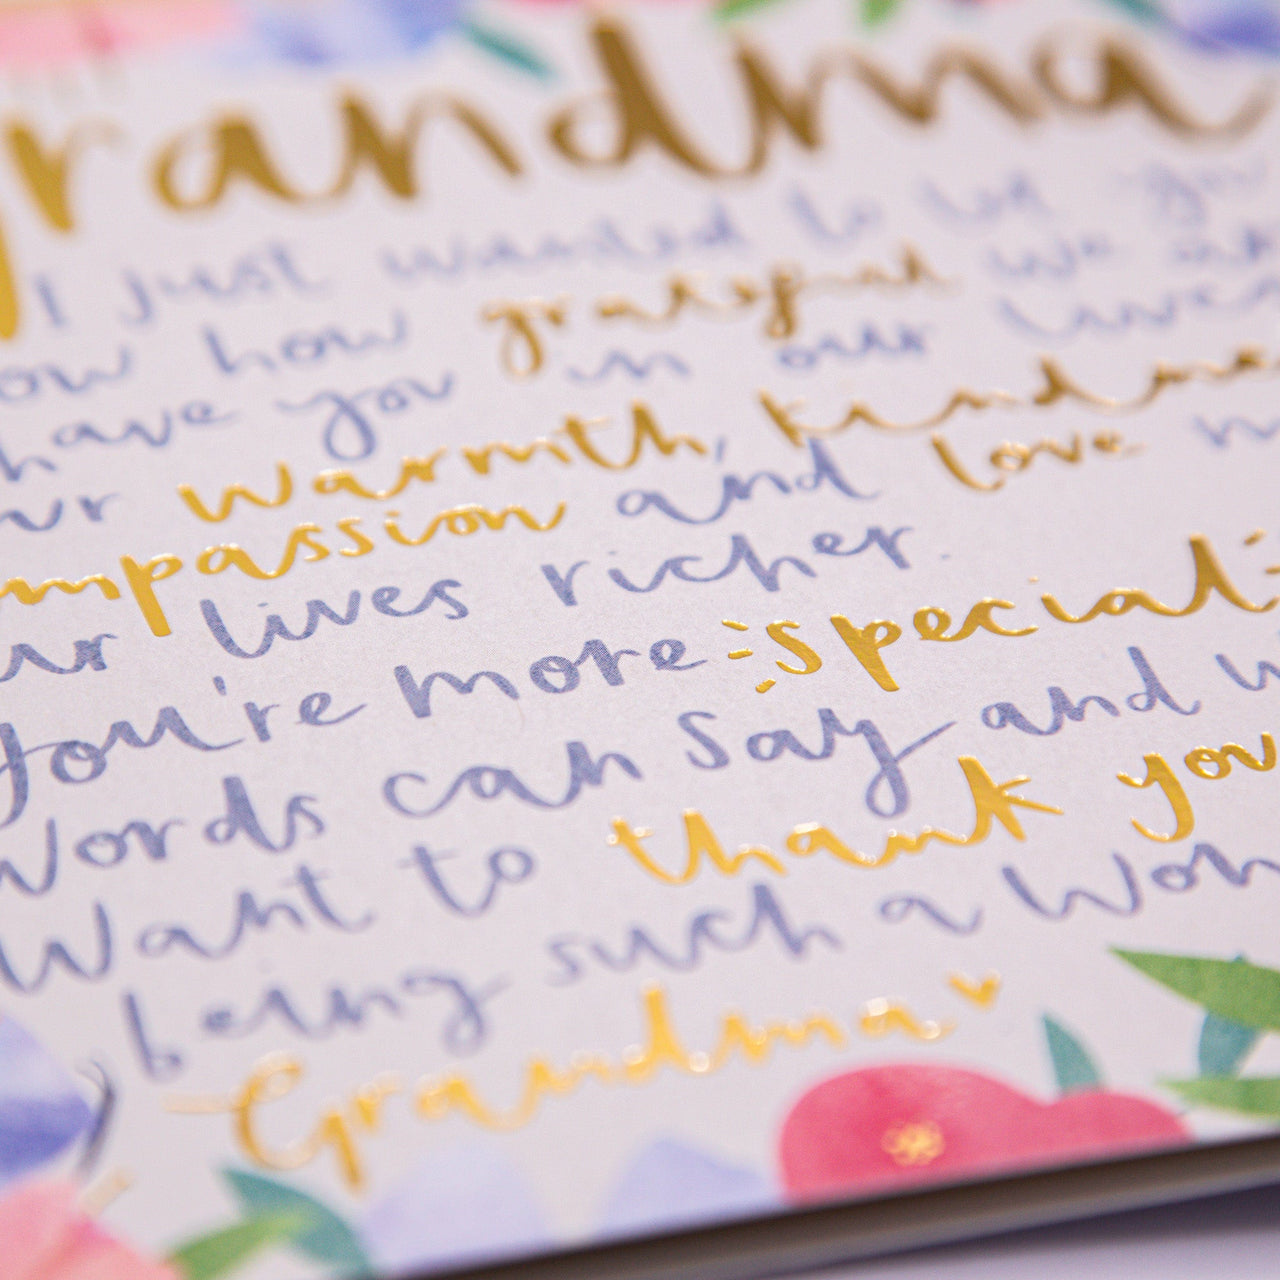 randma
I just wanted to let you
ow how grateful we are
have you in our lives
ur warmth, kindne
mpassion and love m
ur lives richer.
You're more special
words can say and w
want to thank you
being such a won
Grandma